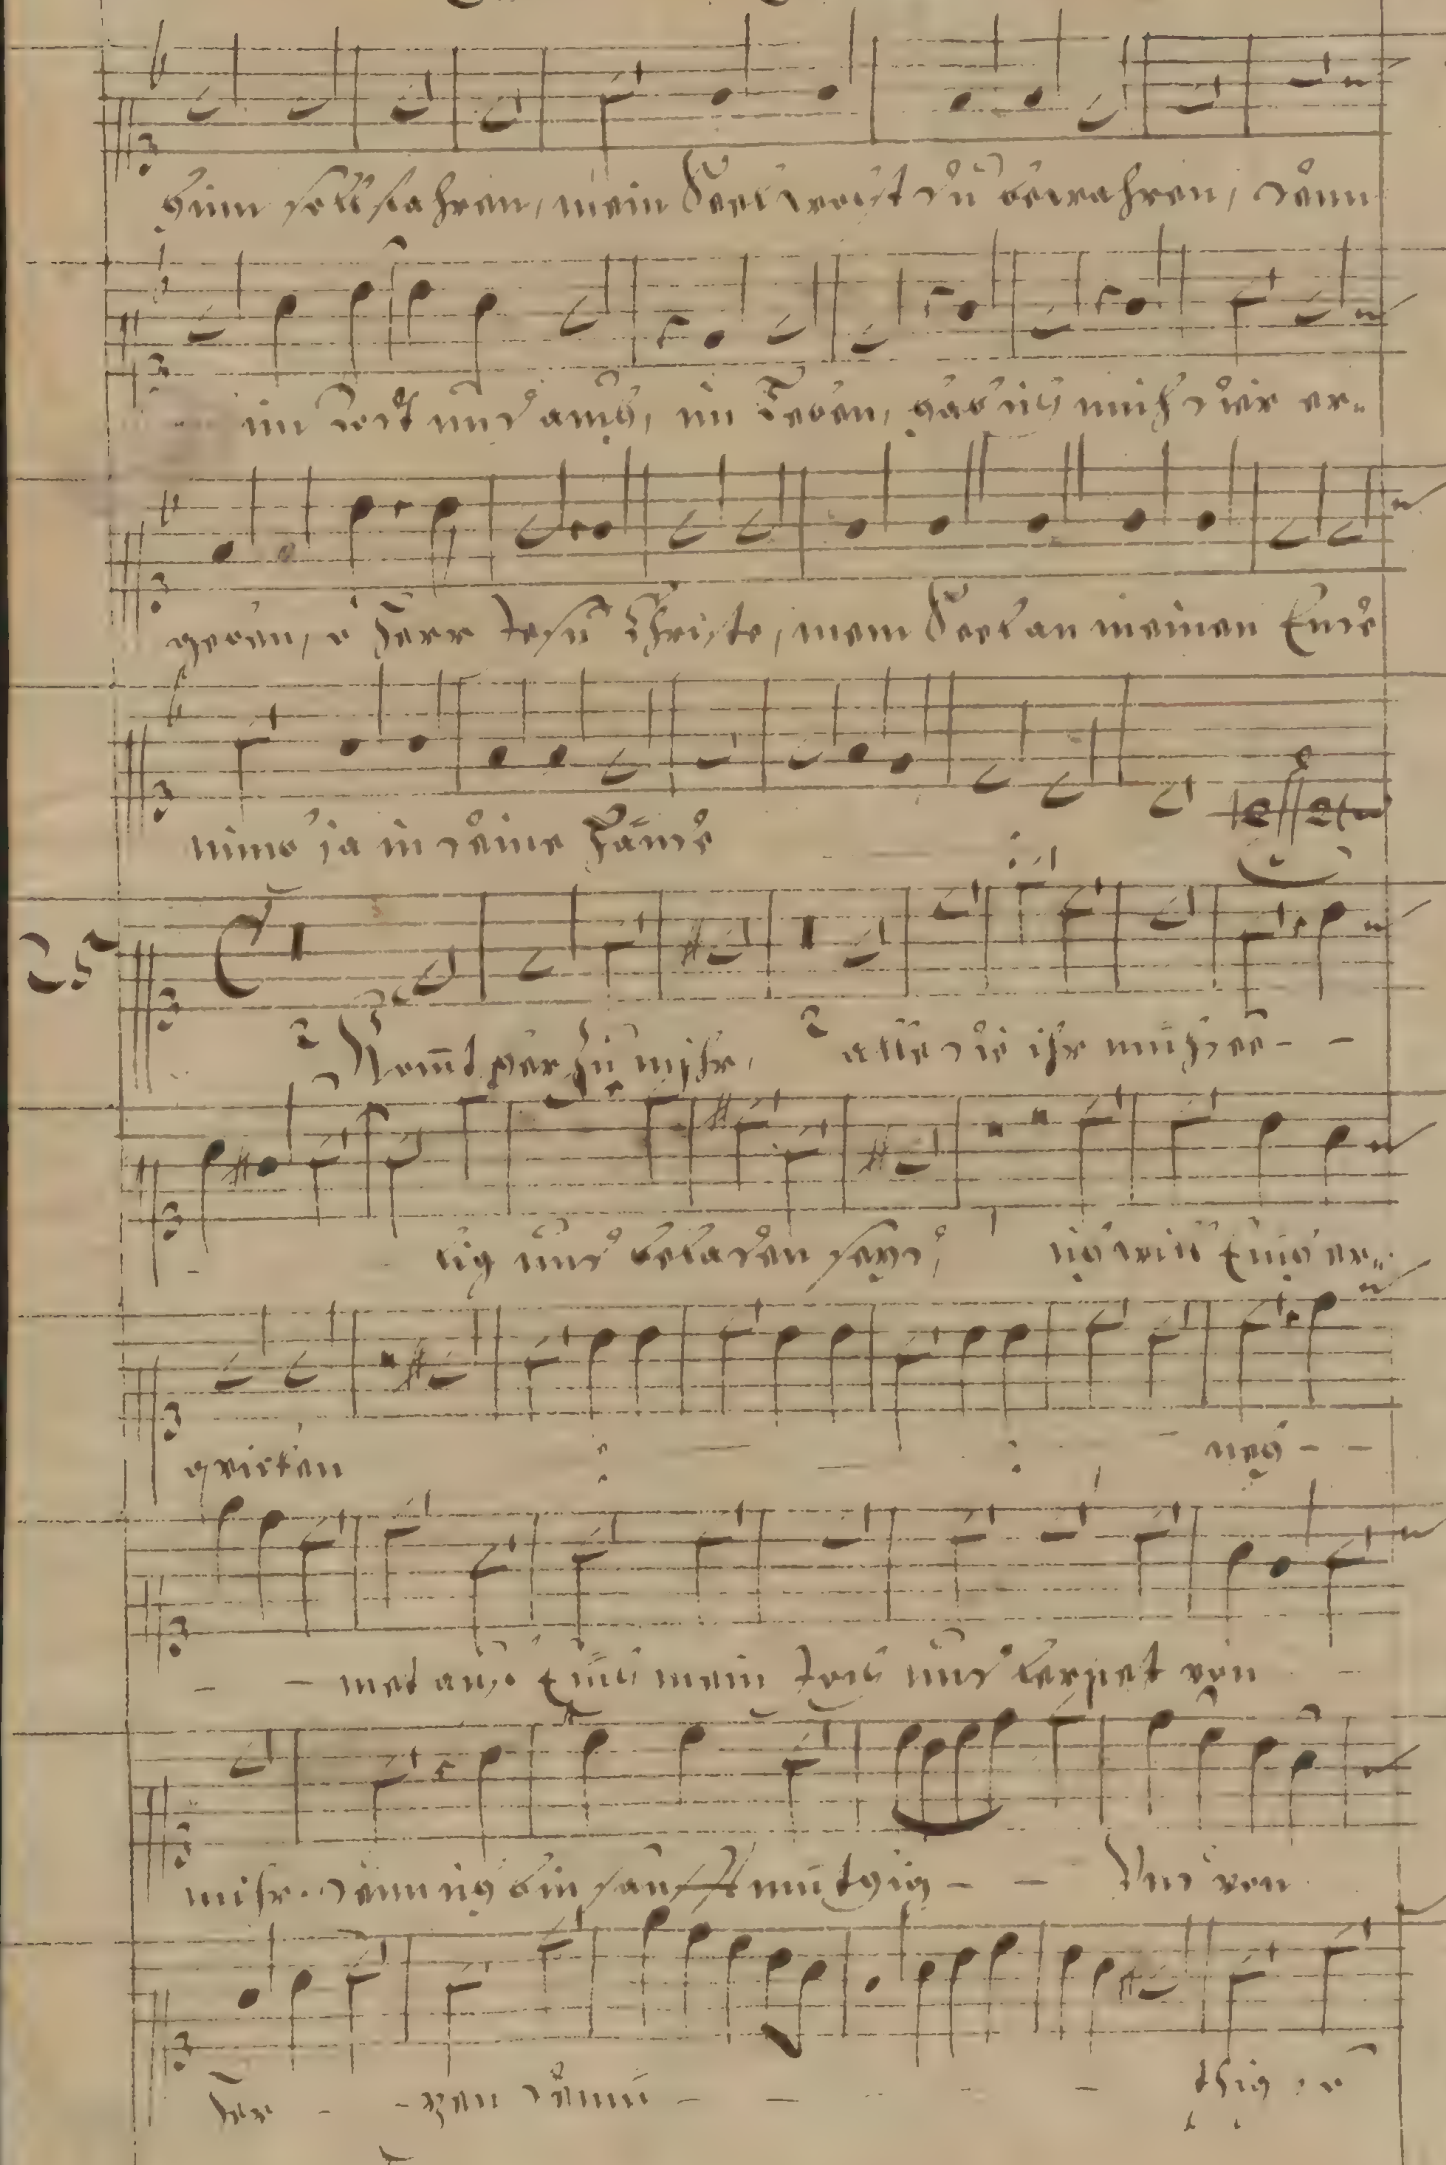 hinn soll fahren, mein Seel wolst du bewahren, denn
im Todt und auch, im Leben, hab ich mich dir er-
geben, o Herr Jesu Christe, mein Seel an meinen Ende
nimb ja in deine Hände
25
Komt her zu mihr, alle die ihr mühsee - -
lig und beladen seyd, ich will Euch er-
qvicken neh - -
- - met auf Euch mein Joch und lernet von
mihr. denn ich bin sanfftmütgig - - Und von
Her - - zen demü - - thig, o